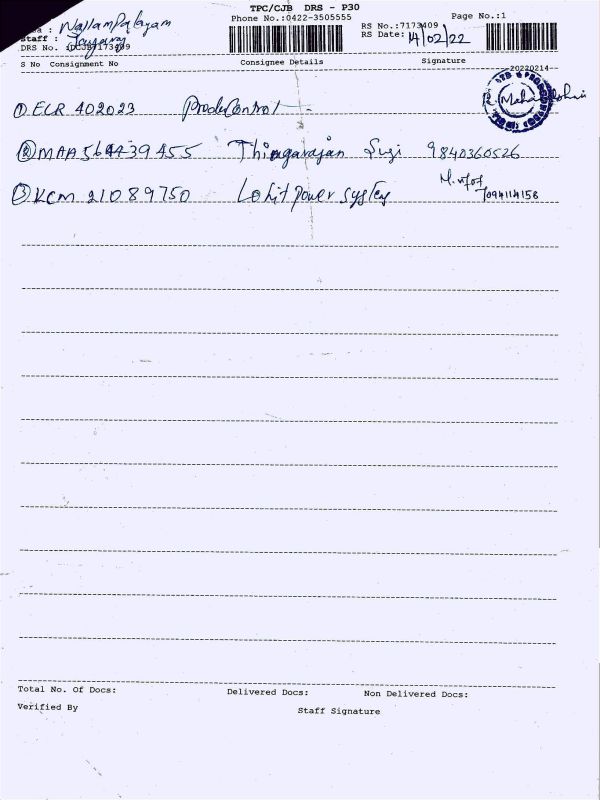 TPC/CJB DRS - P30
Phone No.:0422-3505555
Page No.:1
: Nallampalayam
Staff : Jayaraj
DRS No. :DCJB7173409
RS No.:7173409
RS Date: 14/02/22
20220214
S No Consignment No Consignee Details Signature
① ELR 402023
② MAA564439455 Thiagarajan Suji 9840360526
③ KCM 21089750 Lohit power system
7094114158
Total No. Of Docs: Delivered Docs: Non Delivered Docs:
Verified By Staff Signature